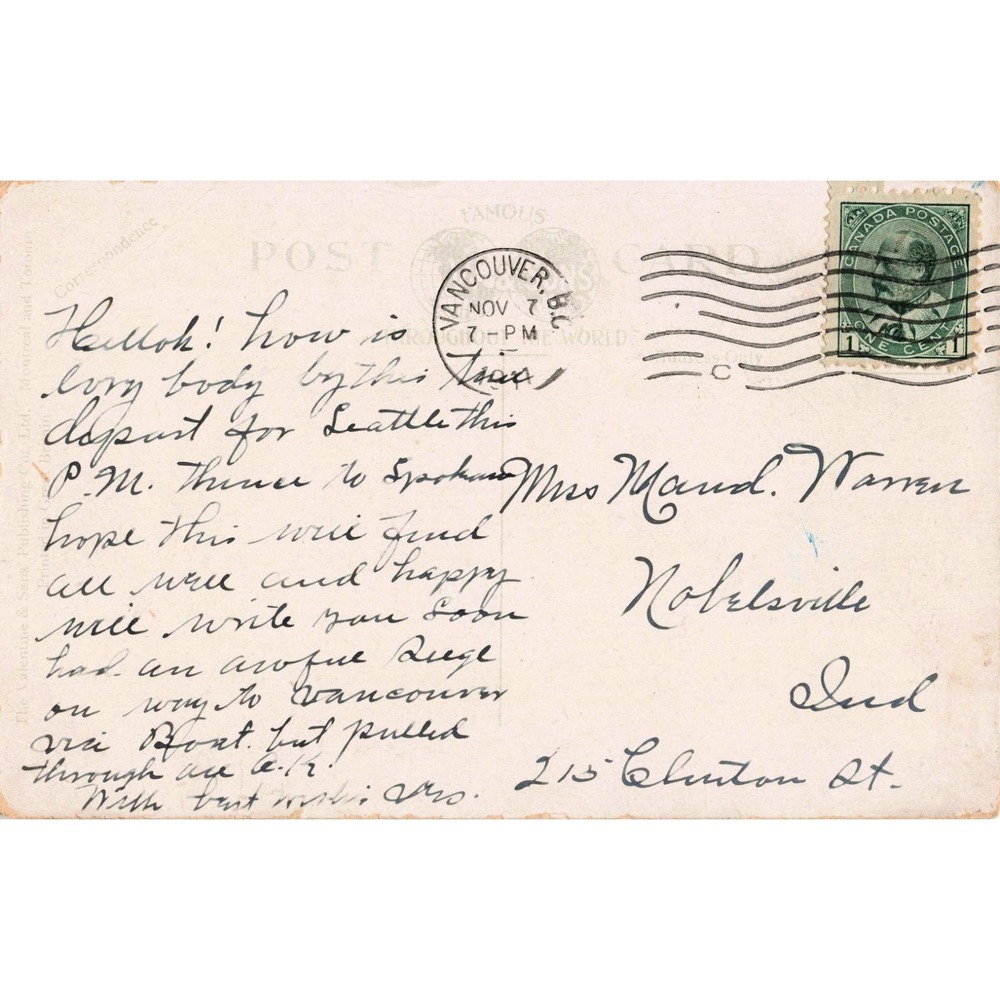 FAMOUS
POST CARD
THROUGHOUT THE WORLD
Correspondence
Address Only.
The Valentine & Sons Publishing Co., Ltd., Montreal and Toronto
Printed in Great Britain
VANCOUVER, B.C.
NOV 7
7 - PM
C
CANADA POSTAGE
1 ONE CENT 1
Helloh! how is
evry body by this time
depart for Seattle this
P.M. thence to Spokane
hope this will find
all well and happy
will write you soon
had an awful Seege
on way to Vancouver
via Boat. but pulled
through all O.K.
With best wishes
Miss Maud. Warren
Nobelsville
Ind
215 Clinton St.